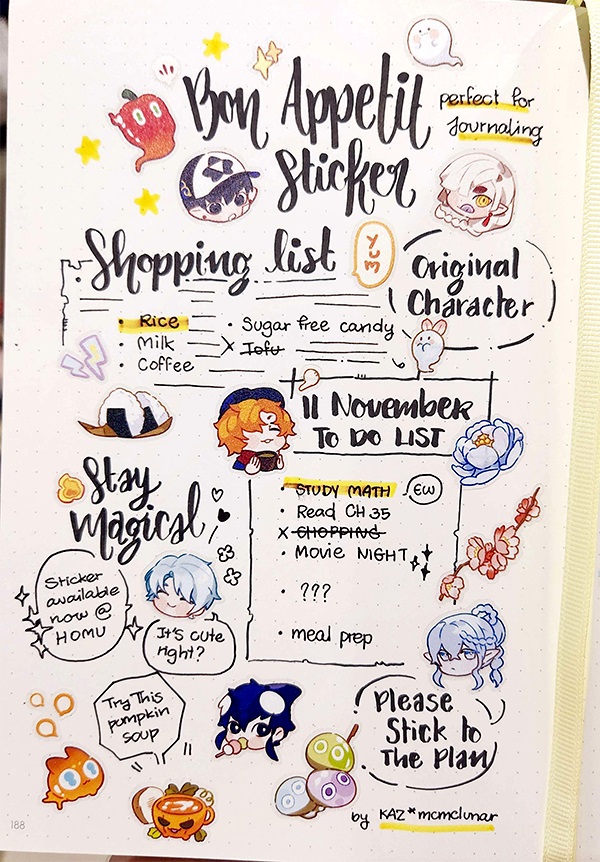 Bon Appetit
Sticker
perfect for
Journaling
Shopping list
YUM
Original
Character
• Rice
• Milk
• Coffee
• Sugar free candy
X Tofu
11 November
TO DO LIST
Stay
Magical
• STUDY MATH
EW
• Read CH 35
X SHOPPING
• Movie NIGHT
• ???
• meal prep
Sticker
available
now @
HOMU
It's cute
right?
Try This
pumpkin
soup
Please
Stick to
The Plan
by KAZ*mcmclunar
188